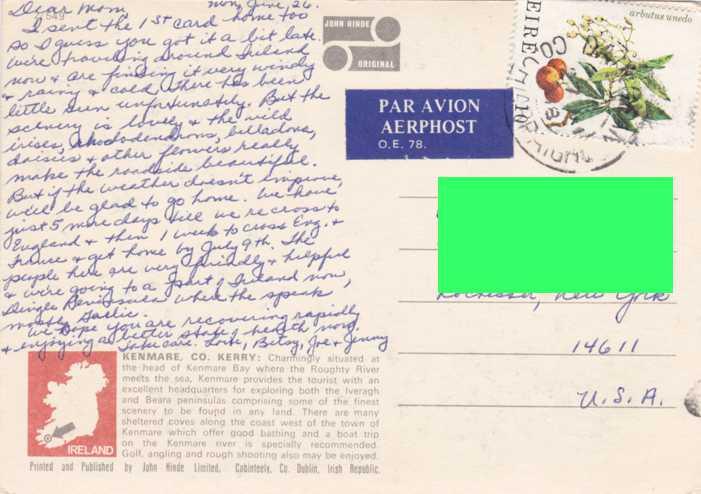 Dear Mom, Mon, June, 26.
I sent the 1st card home too
so I guess you got it a bit late.
We're traveling around Ireland
now & are finding it very windy
& rainy & cold. There has been
little sun unfortunately. But the
scenery is lovely & the wild
irises, rhododendrons, belladona,
daisies & other flowers really
make the roadside beautiful.
But if the weather doesn't improve,
we'll be glad to go home. We have
just 5 more days till we recross to
England & then 1 week to cross Eng. &
France & get home by July 9th. The
people here are very friendly & helpful
& we're going to a part of Ireland now,
Dingle Peninsula where the speak
mostly Gaelic.
We hope you are recovering rapidly
& enjoying a better state of health now.
Take care. Love, Betsy, Joe & Jenny
549
JOHN HINDE
ORIGINAL
PAR AVION
AERPHOST
O.E. 78.
EIRE
arbutus unedo
Rochester, New York
14611
U.S.A.
KENMARE, CO. KERRY: Charmingly situated at
the head of Kenmare Bay where the Roughty River
meets the sea, Kenmare provides the tourist with an
excellent headquarters for exploring both the Iveragh
and Beara peninsulas comprising some of the finest
scenery to be found in any land. There are many
sheltered coves along the coast west of the town of
Kenmare which offer good bathing and a boat trip
on the Kenmare river is specially recommended.
Golf, angling and rough shooting also may be enjoyed.
IRELAND
Printed and Published by John Hinde Limited, Cabinteely, Co. Dublin, Irish Republic.